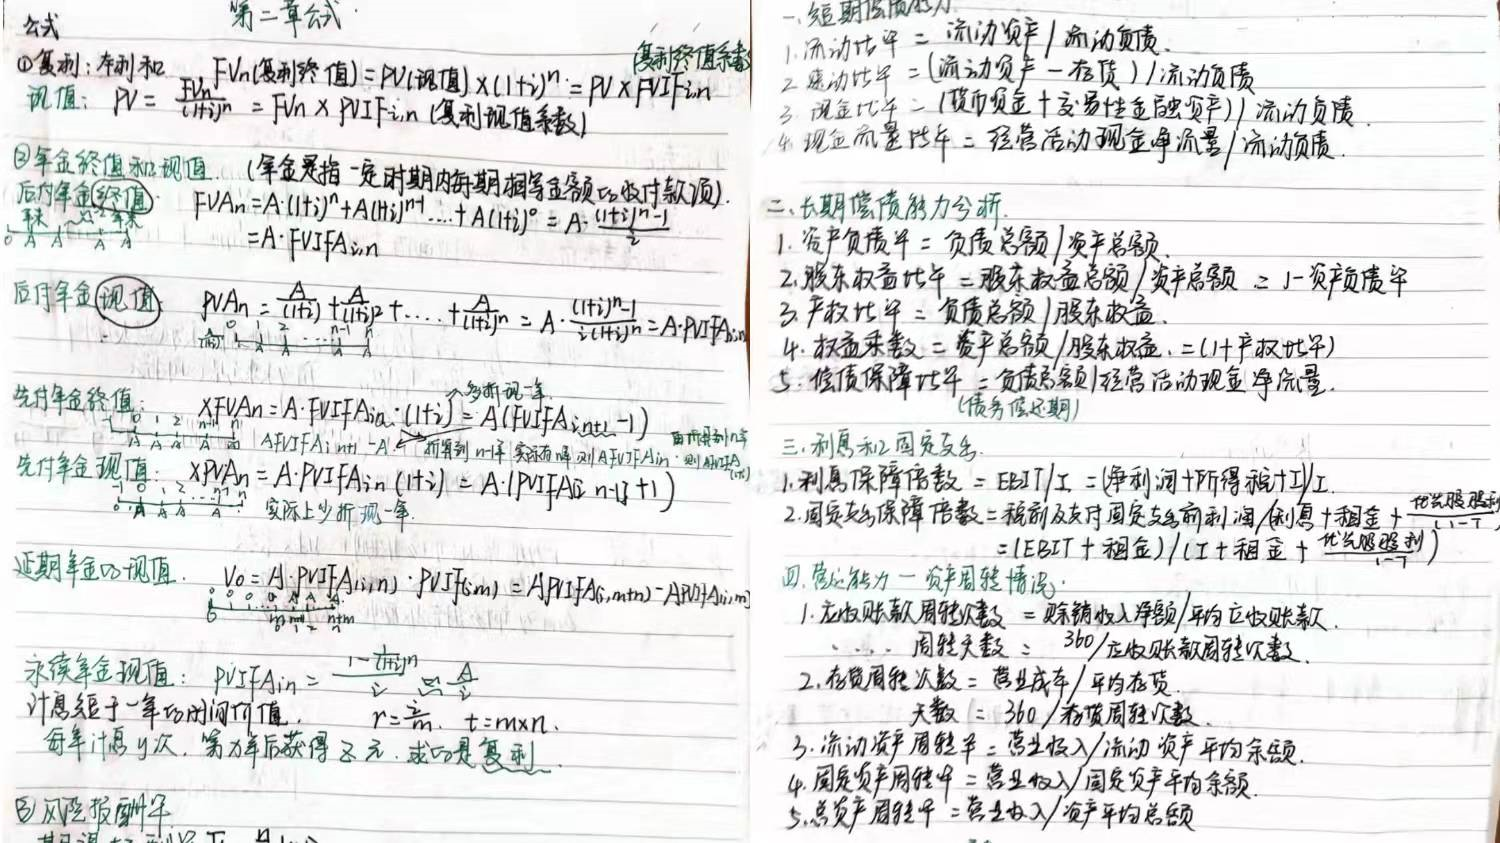 第二章公式
公式
①复利:本利和 FVn(复利终值)=PV(现值)×(1+i)^n=PV×FVIFi,n (复利终值系数)
现值: PV= FVn/(1+i)^n = FVn×PVIFi,n (复利现值系数)
②年金终值和现值 (年金是指一定时期内每期相等金额的收付款项).
后付年金终值: FVAn=A·(1+i)^n+A(1+i)^n-1....+A(1+i)^0=A·((1+i)^n-1)/i
=A·FVIFAi,n
后付年金现值 PVAn=A/(1+i)+A/(1+i)^2+....+A/(1+i)^n=A·((1+i)^n-1)/(i(1+i)^n)=A·PVIFAi,n
多折现一年.
先付年金终值: XFVAn=A·FVIFAin·(1+i)=A(FVIFAi,n+1-1)
AFVIFAi n+1-A 折算到n-1年 实际有n年 则AFVIFAin
先付年金现值: XPVAn=A·PVIFAin(1+i)=A·(PVIFA[i n-1]+1)
实际上少折现一年.
延期年金的现值. V0=A·PVIFA(i,n)·PVIF(i,m)=APVIFA(i,m+n)-APVIFA(i,m)
永续年金现值: PVIFAin=(1-1/(1+i)^n)/i A/i
计息短于一年的时间价值. r=i/m. t=m×n.
每年计息y次,第n年后获得z元.求的是复利.
③风险报酬率
一、短期偿债能力
1.流动比率=流动资产/流动负债.
2.速动比率=(流动资产-存货)/流动负债
3.现金比率=(货币资金+交易性金融资产)/流动负债.
4.现金流量比率=经营活动现金净流量/流动负债.
二、长期偿债能力分析.
1.资产负债率=负债总额/资产总额.
2.股东权益比率=股东权益总额/资产总额=1-资产负债率
3.产权比率=负债总额/股东权益.
4.权益乘数=资产总额/股东权益.=(1+产权比率)
5.偿债保障比率=负债总额/经营活动现金净流量.
(债务偿还期)
三、利息和固定支出.
1.利息保障倍数=EBIT/I=(净利润+所得税+I)/I.
2.固定支出保障倍数=税前及支付固定支出前利润/(利息+租金+优先股股利/(1-T)
=(EBIT+租金)/(I+租金+优先股股利/1-T)
四、营运能力—资产周转情况.
1.应收账款周转次数=赊销收入净额/平均应收账款.
....周转天数=360/应收账款周转次数.
2.存货周转次数=营业成本/平均存货.
天数=360/存货周转次数.
3.流动资产周转率=营业收入/流动资产平均余额.
4.固定资产周转率=营业收入/固定资产平均余额.
5.总资产周转率=营业收入/资产平均总额